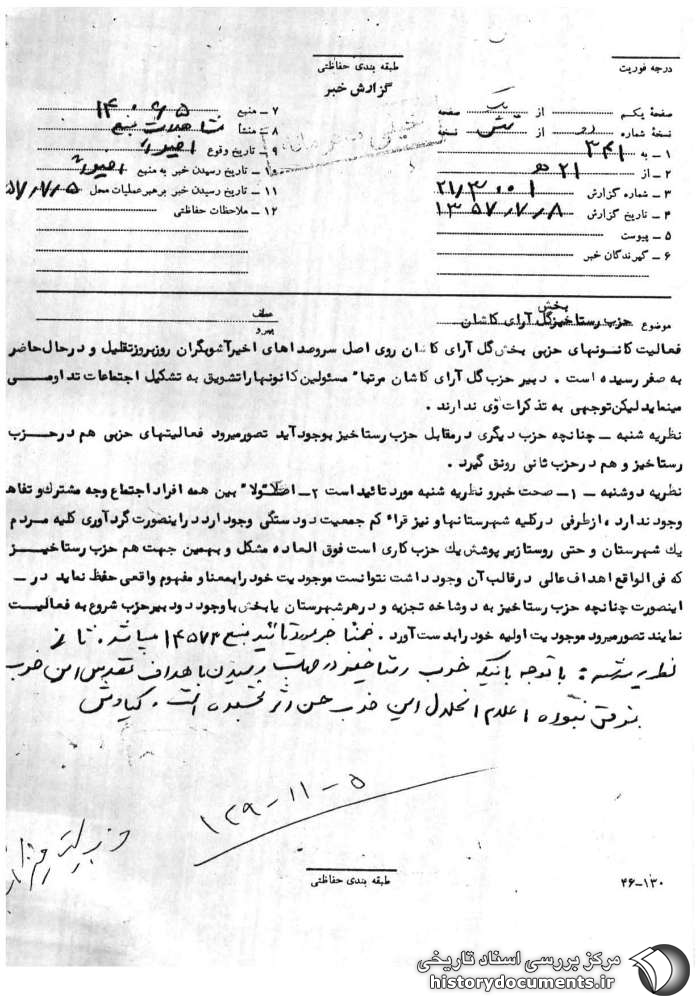 طبقه بندی حفاظتی
درجه فوریت
گزارش خبر
صفحهٔ یکم از یک صفحه
نسخهٔ شماره از شش نسخه
۱ ـ به ۳۴۱
۲ ـ از ۲۱ هـ
۳ ـ شماره گزارش ۲۱/۳۰۰۱
۴ ـ تاریخ گزارش ۱۳۵۷/۷/۸
۵ ـ پیوست
۶ ـ گیرندگان خبر
۷ ـ منبع
۸ ـ منشأ مشاهدات منبع
۹ ـ تاریخ وقوع اخیراً
۱۰ ـ تاریخ رسیدن خبر به منبع اخیراً
۱۱ ـ تاریخ رسیدن خبر برهبر عملیات محل ۵۷/۷/۵
۱۲ ـ ملاحظات حفاظتی
خیلی محرمانه
موضوع حزب رستاخیز بخش گل آرای کاشان
عطف
پیرو
فعالیت کانونهای حزبی بخش گل آرای کاشان روی اصل سروصداهای اخیر آشوبگران روزبروز تقلیل و در حال حاضر
به صفر رسیده است . دبیر حزب گل آرای کاشان مرتباً مسئولین کانونها را تشویق به تشکیل اجتماعات تداومی
مینماید لیکن توجهی به تذکرات وی ندارند .
نظریه شنبه ـ چنانچه حزب دیگری در مقابل حزب رستاخیز بوجود آید تصور میرود فعالیتهای حزبی هم در حزب
رستاخیز و هم در حزب ثانی رونق گیرد .
نظریه دوشنبه ـ ۱ـ صحت خبر و نظریه شنبه مورد تائید است ۲ـ اصولاً بین همه افراد اجتماع وجه مشترک و تفاهم
وجود ندارد ، از طرفی در کلیه شهرستانها و نیز قراء کم جمعیت دودستگی وجود دارد در اینصورت گردآوری کلیه مردم
یک شهرستان و حتی روستا زیر پوشش یک حزب کاری است فوق العاده مشکل و بهمین جهت هم حزب رستاخیز
که فی الواقع اهداف عالی در قالب آن وجود داشت نتوانست موجودیت خود را بمعنا و مفهوم واقعی حفظ نماید در ـ
اینصورت چنانچه حزب رستاخیز به دو شاخه تجزیه و در هر شهرستان یا بخش با وجود دو دبیر حزب شروع به فعالیت
نمایند تصور میرود موجودیت اولیه خود را بدست آورد . ضمناً خبر مورد تائید منبع ۱۴۵۷۴ میباشد .
نظریه سه شنبه : با توجه باینکه حزب رستاخیز در جهت رسیدن باهداف مقدس این حزب
موفق نبوده اعلام انحلال این حزب حسن اثر بخشیده است . کیاوش
۱۲۹-۱۱-۵
طبقه بندی حفاظتی
۴۶-۱۳۰
مرکز بررسی اسناد تاریخی
historydocuments.ir